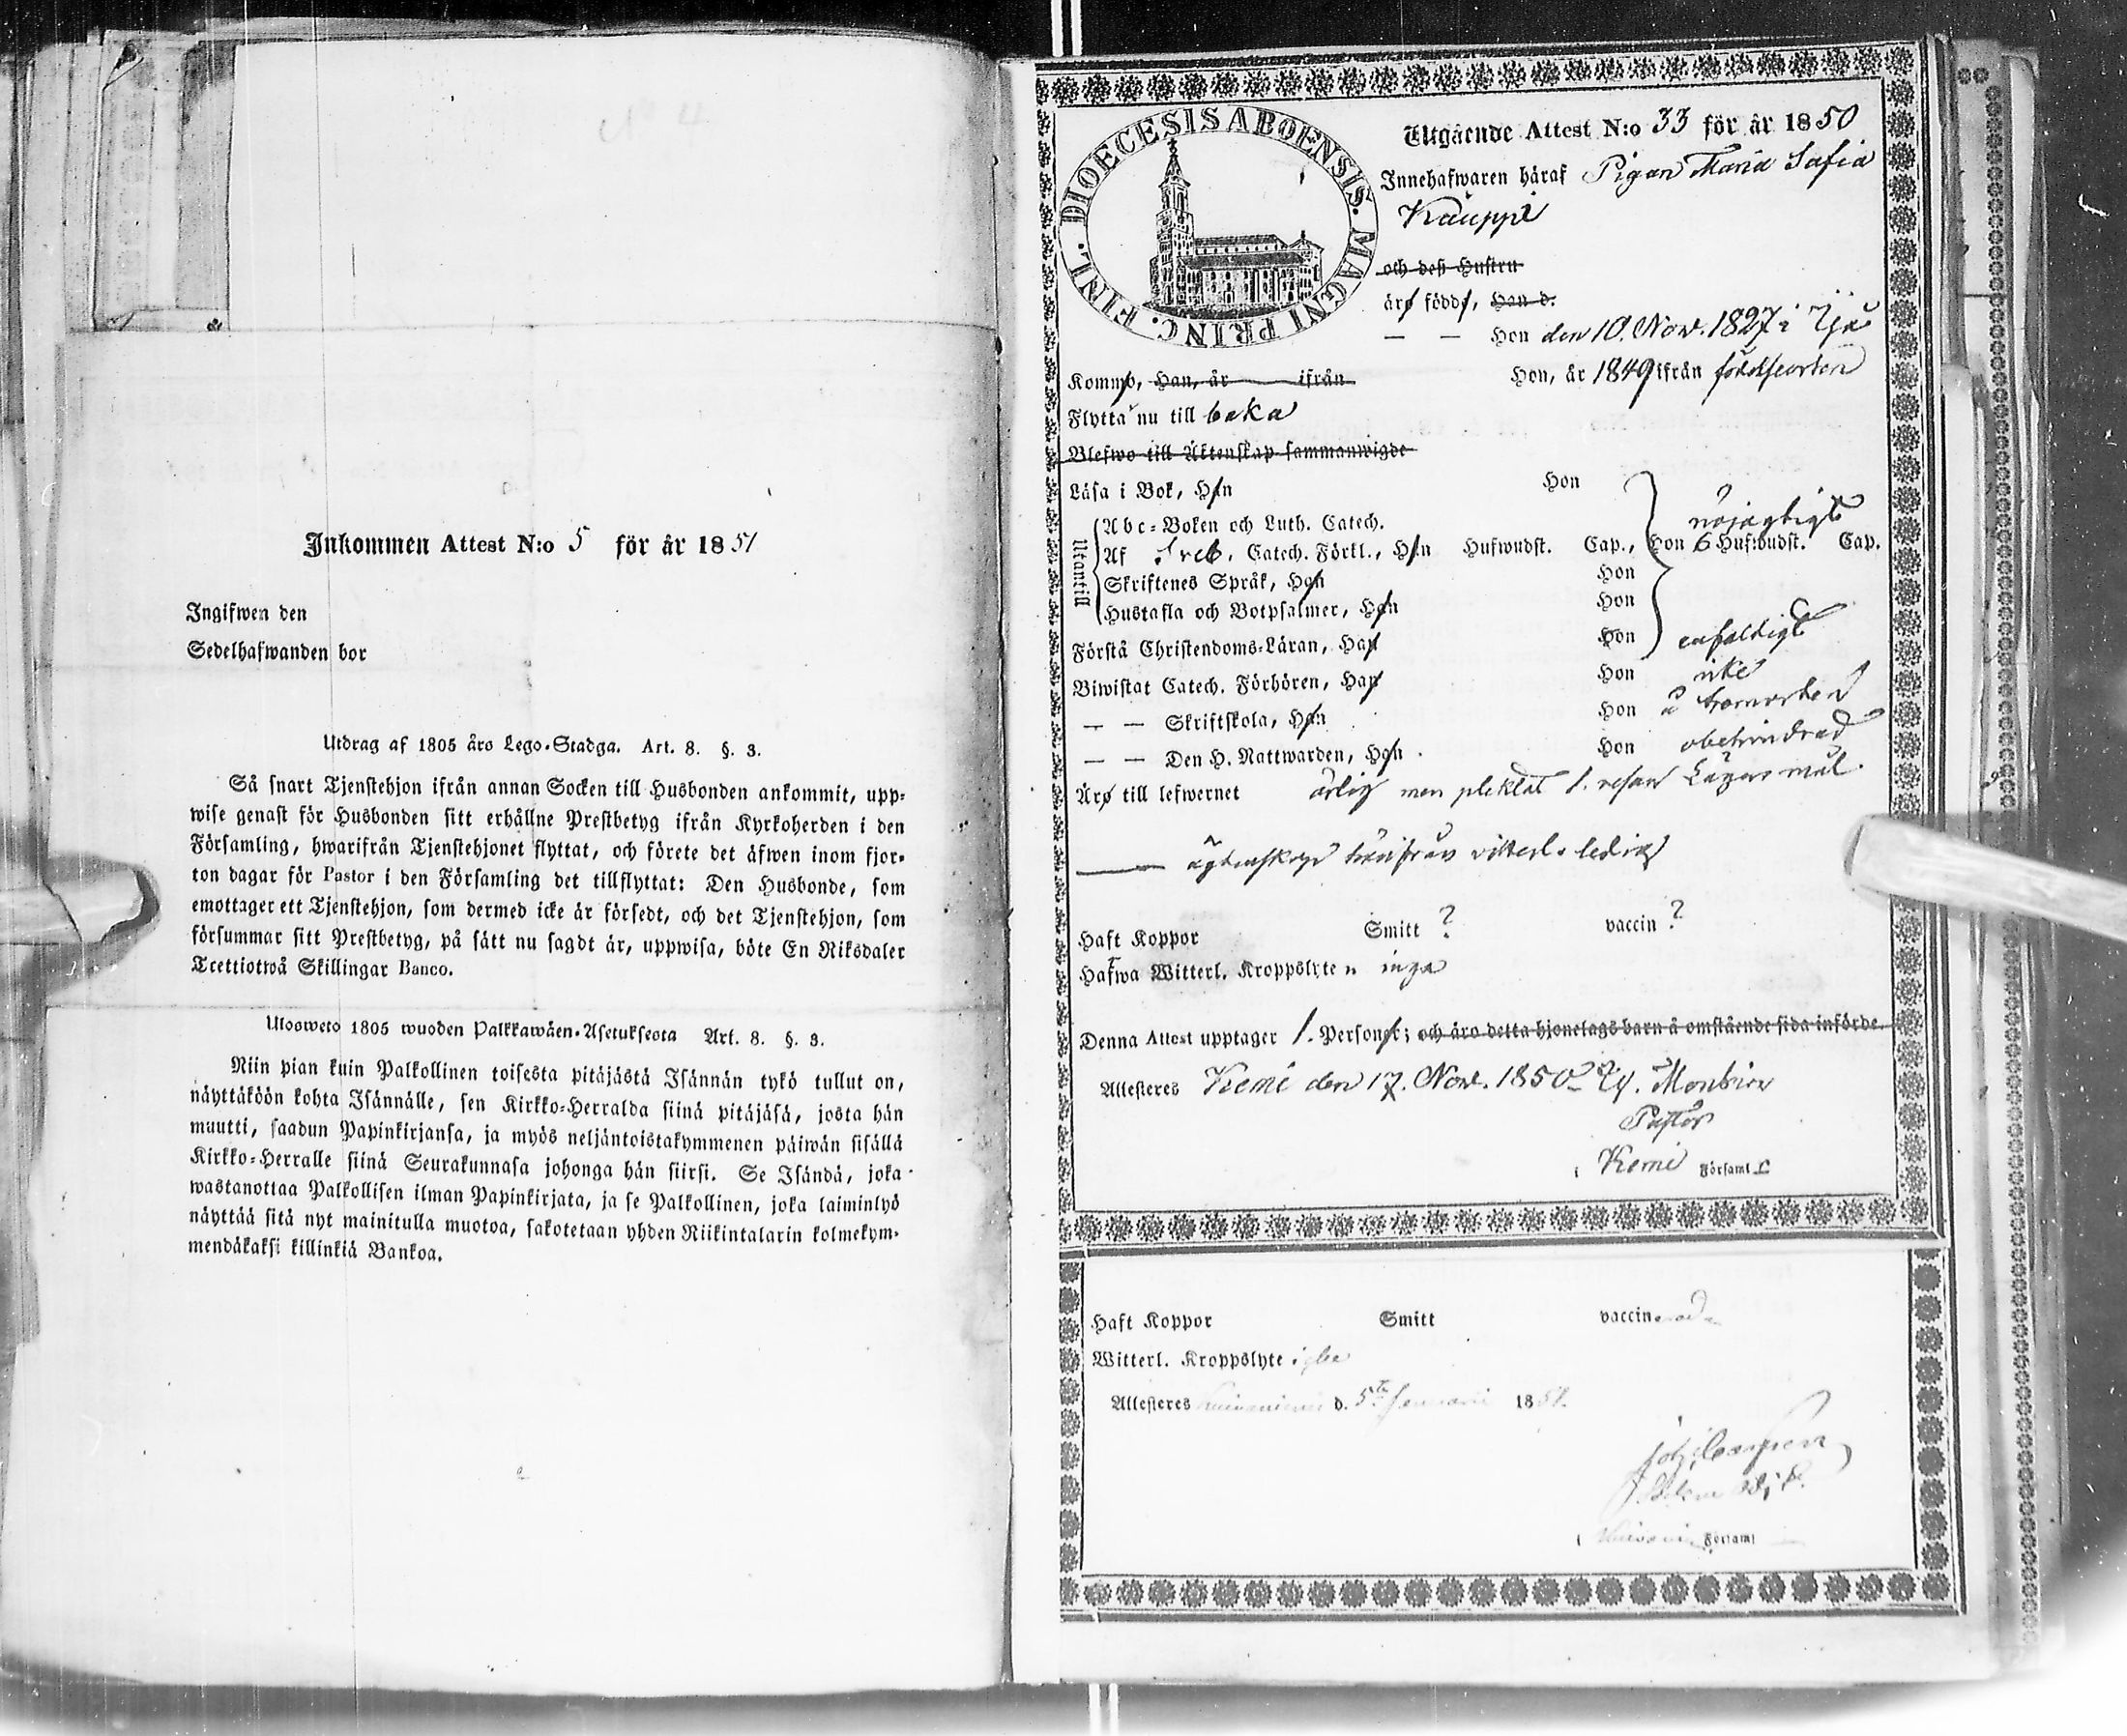 No 4
Inkommen Attest N:o 5 för år 1851
Ingifwen den
Sedelhafwanden bor
Utdrag af 1805 års Lego-Stadga. Art. 8. §. 3.
Så snart Tjenstehjon ifrån annan Socken till Husbonden ankommit, upp-
wise genast för Husbonden sitt erhållne Prestbetyg ifrån Kyrkoherden i den
Församling, hwarifrån Tjenstehjonet flyttat, och förete det äfwen inom fjor-
ton dagar för Pastor i den Församling det tillflyttat: Den Husbonde, som
emottager ett Tjenstehjon, som dermed icke är försedt, och det Tjenstehjon, som
försummar sitt Prestbetyg, på sätt nu sagdt är, uppwisa, böte En Riksdaler
Trettiotwå Skillingar Banco.
Ulosweto 1805 wuoden Palkkawäen-Asetuksesta Art. 8. §. 3.
Niin pian kuin Palkollinen toisesta pitäjästä Isännän tykö tullut on,
näyttäköön kohta Isännälle, sen Kirkko-Herralda siinä pitäjäsä, josta hän
muutti, saadun Papinkirjansa, ja myös neljäntoistakymmenen päiwän sisällä
Kirkko-Herralle siinä Seurakunnasa johonga hän siirsi. Se Isändä, joka
wastanottaa Palkollisen ilman Papinkirjata, ja se Palkollinen, joka laiminlyö
näyttää sitä nyt mainitulla muotoa, sakotetaan yhden Riikintalarin kolmekym-
mendäkaksi killinkiä Bankoa.
DIOECESIS ABOENSIS. MAGNI PRINC. FINL.
Utgående Attest N:o 33 för år 1850
Innehafwaren häraf Pigan Maria Safia
Kauppi
och deß Hustru
äro födde, Han d.
— — Hon den 10. Nov. 1827 i Ijo
Kommo, Han, år ifrån Hon, år 1849 ifrån födelseorten
Flytta nu till baka
Blefwo till Äktenskap sammanwigde
Läsa i Bok, Han Hon
Utantill
Abc-Boken och Luth. Catech. nöjagtigt
Af Catech. Förkl., Han Hufwudst. Cap., Hon 6 Hufwudst. Cap.
Skriftenes Språk, Han Hon
Hustafla och Botpsalmer, Han Hon
Förstå Christendoms-Läran, Han Hon enfaldigt
Biwistat Catech. Förhören, Han Hon
— — Skriftskola, Han Hon å
— — Den H. Nattwarden, Han Hon obehindrad
Äro till lefwernet ärlig men pliktat 1. resan Lägersmål.
ägtenskap härifrån vitterl. ledig
Haft Koppor Smitt ? vaccin ?
Hafwa Witterl. Kroppslyten inga
Denna Attest upptager 1. Personer; och äro detta hjonelags barn å omstående sida införde.
Attesteras Kemi den 17. Nov. 1850
Pastor
i Kemi Församl
Haft Koppor Smitt vaccinerad
Witterl. Kroppslyte
Attesteras Kuivaniemi d. 5te Januarii 1851.
i Församl